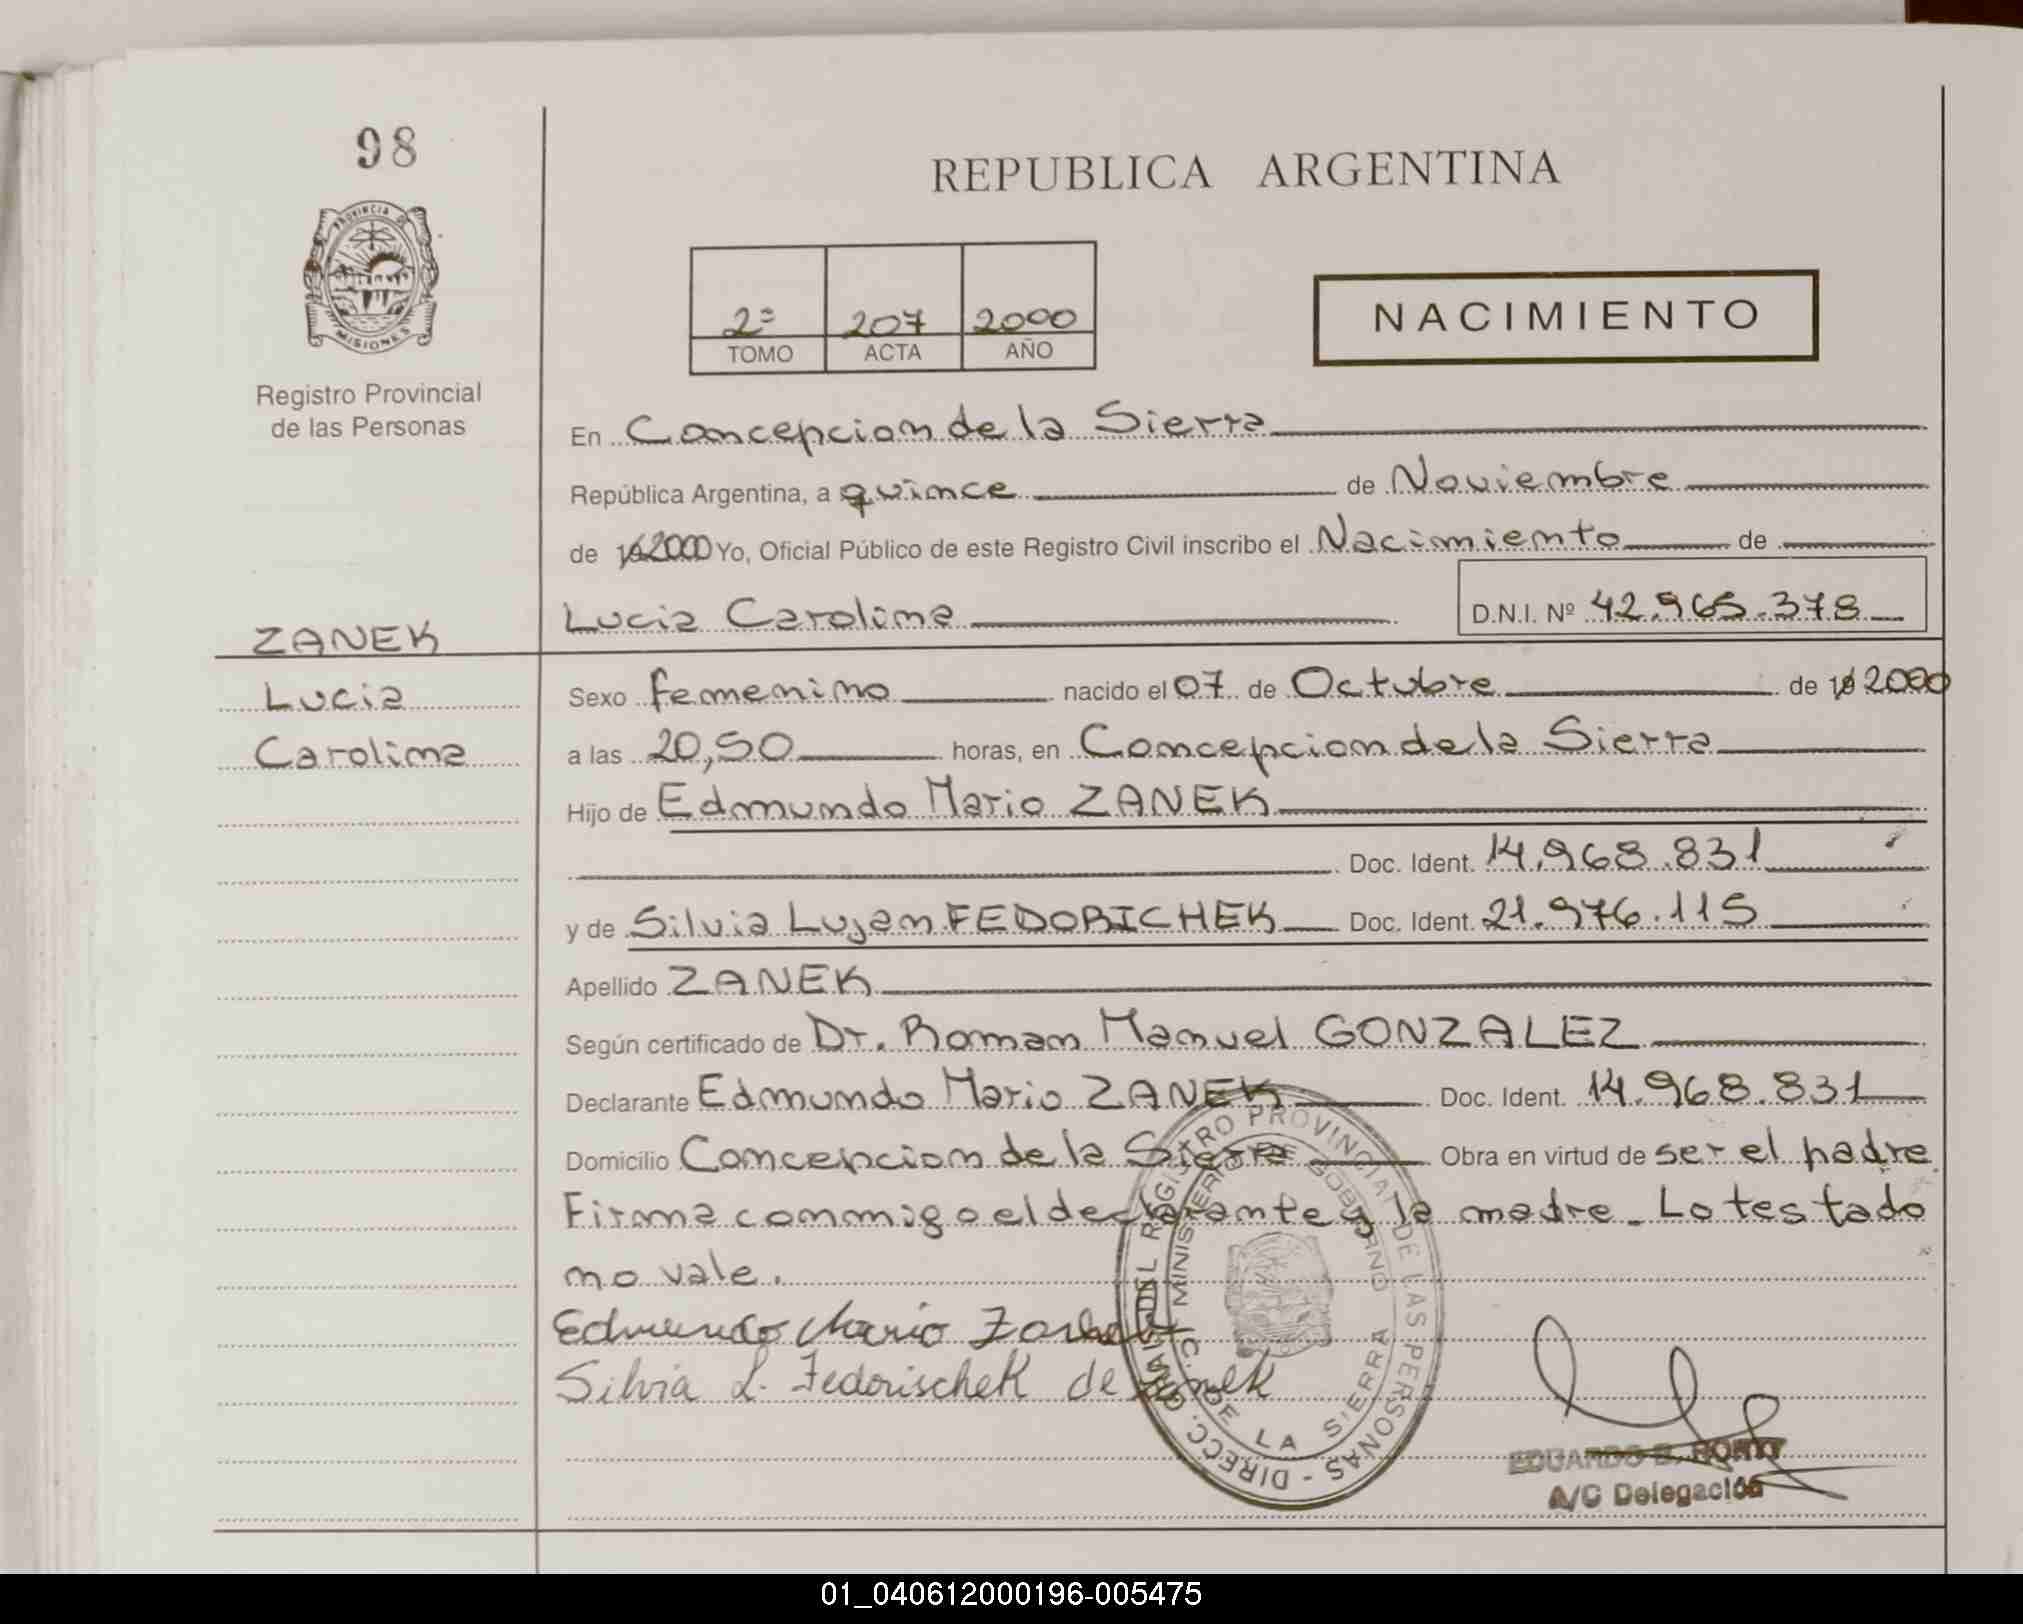 98
PROVINCIA DE
MISIONES
Registro Provincial
de las Personas
REPUBLICA ARGENTINA
2ª 207 2000
TOMO ACTA AÑO
NACIMIENTO
En Concepcion de la Sierra
República Argentina, a quince de Noviembre
de 2000 Yo, Oficial Público de este Registro Civil inscribo el Nacimiento de
Lucia Carolina D.N.I. Nº 42.965.378
ZANEK
Lucia
Carolina
Sexo femenino nacido el 07 de Octubre de 2000
a las 20,50 horas, en Concepcion de la Sierra
Hijo de Edmundo Mario ZANEK
Doc. Ident. 14.968.831
y de Silvia Lujan FEDORICHEK Doc. Ident. 21.976.115
Apellido ZANEK
Según certificado de Dr. Roman Manuel GONZALEZ
Declarante Edmundo Mario ZANEK Doc. Ident. 14.968.831
Domicilio Concepcion de la Sierra Obra en virtud de ser el padre
Firma conmigo el declarante y la madre. Lo testado
no vale.
Edmundo Mario
Silvia L. Fedorischek de Zanek
DIRECC. GRAL. DEL REGISTRO PROVINCIAL DE LAS PERSONAS -
MINISTERIO DE GOBIERNO
C. DE LA SIERRA
EDUARDO
A/C Delegación
01_040612000196-005475